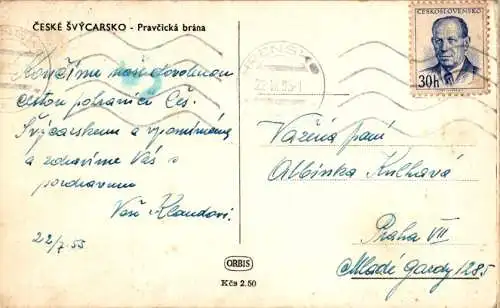 ČESKÉ ŠVÝCARSKO - Pravčická brána
Končíme naši dovolenou
cestou pohraničí Čes.
Švýcarskem a vzpomínáme
a zdravíme Vás s
pozdravem
Vaši Klandovi.
22/7.55
ORBIS
Kčs 2.50
ČESKOSLOVENSKO
30h
Vážená paní
Albínka Kulhavá
Praha VII
Mladé Gardy 1285